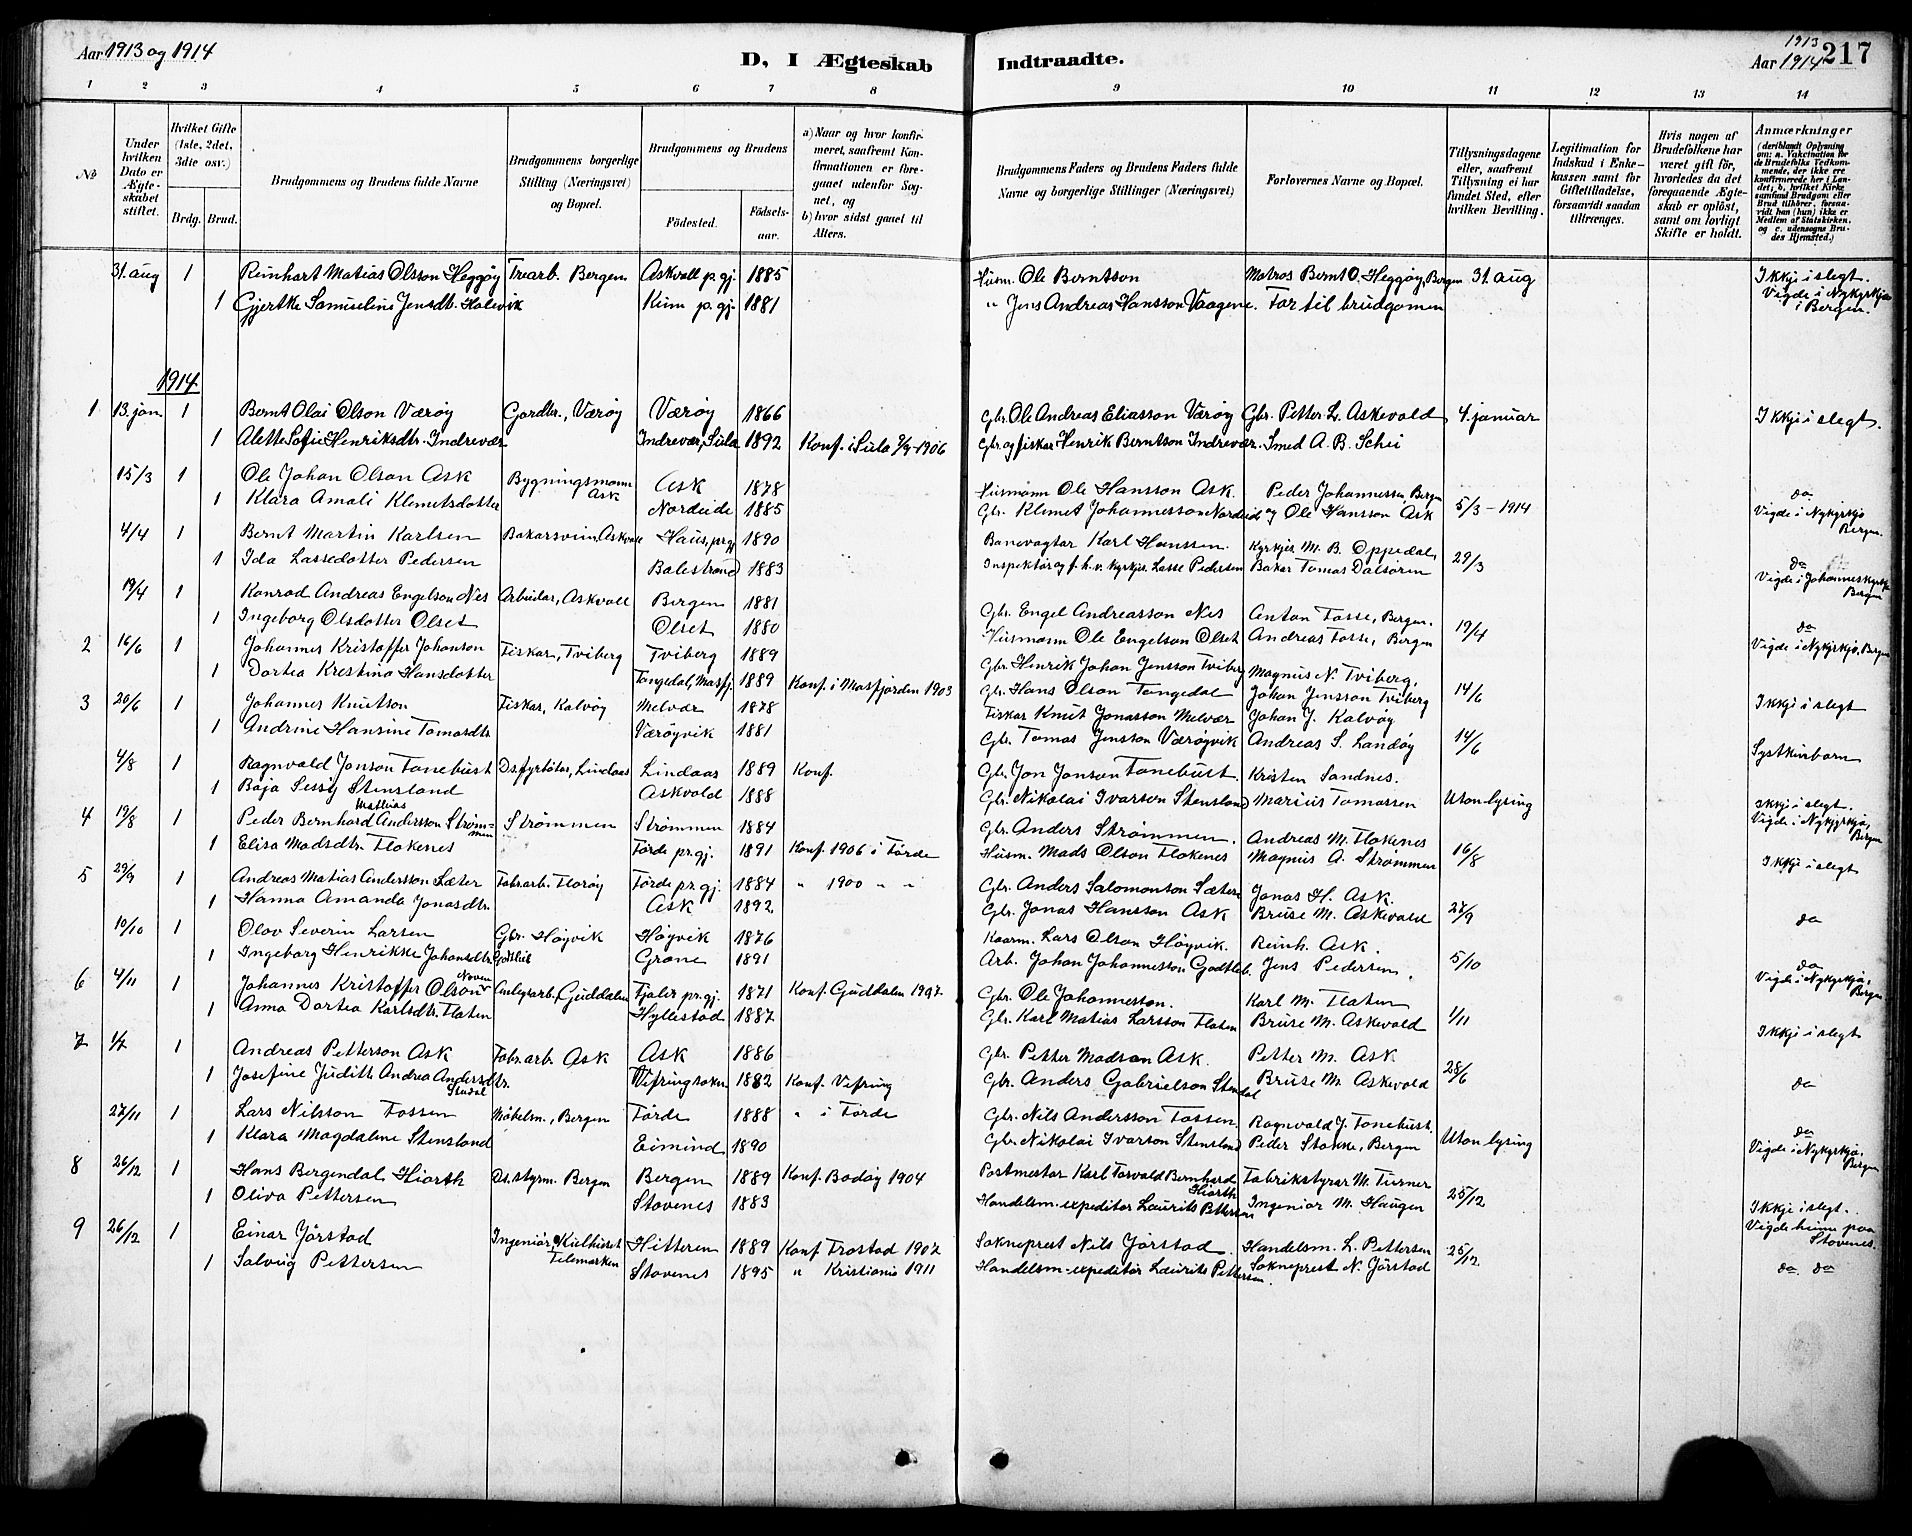 Aar 1913 og 1914
D, I Ægteskab
Indtraadte.
1913
Aar 1914
217
1 2 3 4 5 6 7 8
9 10 11 12 13 14
No
Under hvilken Dato er Ægteskabet stiftet.
Hvilket Gifte (1ste, 2det, 3die osv.)
Brdg. Brud.
Brudgommens og Brudens fulde Navne
Brudgommens borgerlige Stilling (Næringsvei) og Bopæl.
Brudgommens og Brudens
Fødested. Fødselsaar.
a) Naar og hvor konfirmeret, saafremt Konfirmationen er foregaaet udenfor Sognet, og
b) hvor sidst gaaet til Alters.
Brudgommens Faders og Brudens Faders fulde Navne og borgerlige Stillinger (Næringsvei)
Forlovernes Navne og Bopæl.
Tillysningsdagene eller, saafremt Tillysning ei har fundet Sted, efter hvilken Bevilling.
Legitimation for Indskud i Enkekassen samt for Giftetilladelse, forsaavidt saadan tiltrænges.
Hvis nogen af Brudefolkene har været gift før, hvorledes da det foregaaende Ægteskab er opløst, samt om lovligt Skifte er holdt.
Anmærkninger (deriblandt Oplysning om: a. Vakcination for de Brudefolks Vedkommende, der ikke ere konfirmerede her i Landet; b. hvilket Kirkesamfund Brudgom eller Brud tilhører, forsaavidt han (hun) ikke er Medlem af Statskirken, og c. udensogns Brudes Hjemsted.)
31. aug 1 Reinhart Matias Olsson Heggøy Trearb. Bergen Askvoll p.gj. 1885 Husm. Ole Berntson Matros Bernt O. Heggøy, Bergen 31 aug Ikkji i slegt.
1 Gjertke Samueline Jensdtr. Holevik Kinn p.gj. 1881 " Jens Andreas Hansson Vaagene. Far til brudgomen Vigde i Nykyrkja i Bergen.
1914
1 13. jan. 1 Bernt Olai Olson Værøy Gardbr., Værøy Værøy 1866 Gbr. Ole Andreas Eliasson Værøy Gbr. Petter L. Askevold 4. januar Ikkji i slegt.
1 Alette Sofie Henriksdtr. Indrevær Indrevær, Sula 1892 Konf. i Sula 2/9-1906 Gbr. og fiskar Henrik Berntson Indrevær. Smed A. B. Schei
15/3 1 Ole Johan Olson Ask Bygningsmann Ask Ask 1878 Husmann Ole Hansson Ask. Peder Johannessen, Bergen do
1 Klara Amali Klemetsdotter Nordeide 1885 Gbr. Klemet Johannesson Nordeide og Ole Hansson Ask 5/3-1914 Vigde i Nykyrkjo Bergen.
4/4 1 Bernt Martin Karlsen Bakarsvein, Askvoll Haus, prgj 1890 Banevagtar Karl Hanssen. Kyrkjes. M. B. Oppedal,
1 Ida Lassedotter Pedersen Balestrand 1883 Inspektør og f.h.v. kyrkjes. Lasse Pedersen Bakar Tomas Dalsøren 29/3 do Vigde i Johanneskyrkja Bergen
19/4 1 Konrad Andreas Engelson Nes Arbeidar, Askvoll Bergen 1881 Gbr. Engel Andreasson Nes Anton Fosse, Bergen.
1 Ingeborg Olsdotter Olset Olset 1880 Husmann Ole Engelson Olset Andreas Fosse, Bergen 19/4 do Vigde i Nykyrkjo, Bergen
2 16/6 1 Johannes Kristoffer Johanson Fiskar, Tviberg Tviberg 1889 Gbr. Henrik Johan Jensson Tviberg Magnus N. Tviberg,
1 Dortea Kristina Hansdotter Tangedal, Masfj. 1889 Konf. i Masfjorden 1903 Gbr. Hans Olson Tangedal Johan Jensson Tviberg 14/6 Ikkji i slegt
3 20/6 1 Johannes Knutson Fiskar, Kalvøy Melvær 1878 Fiskar Knut Jonasson Melvær Johan J. Kalvøy
1 Andrine Hansine Tomasdtr. Værøyvik 1881 Gbr. Tomas Jensson Værøyvik Andreas S. Landøy 14/6 Syskinbarn
4/8 1 Ragnvald Jonson Tonebust Ds.fyrbøtar, Lindaas Lindaas 1889 Konf. Gbr. Jon Jonson Tonebust. Kristen Sandnes.
1 Boja Sessy Stensland Askvold 1888 Gbr. Nikolai Ivarson Stensland Marius Tomassen Utan lysing Ikkji i slegt. Vigde i Nykyrkjo, Bergen
4 19/8 1 Peder Bernhard Mathias Andersson Strømmen Strømmen Strømmen 1884 Gbr. Anders Strømmen. Andreas M. Flokenes
1 Elisa Madsdtr. Flokenes Førde pr.gj. 1891 Konf. 1906 i Førde Husm. Mads Olson Flokenes Magnus A. Strømmen 16/8 Ikkji i slegt
5 29/9 1 Andreas Matias Andersson Sæter Fabr.arb. Florøy Førde pr.gj. 1884 " 1900 " " Gbr. Anders Salomonson Sæter Jonas H. Ask.
1 Hanna Amanda Jonasdtr. Ask 1892 Gbr. Jonas Hansson Ask Bruse M. Askevold 27/9 do
10/10 1 Olav Severin Larsen Gbr. Høyvik Høyvik 1876 Kaarm. Lars Olson Høyvik. Reinh. Ask.
1 Ingeborg Henrikke Johansdtr. Godtlieb Grane 1891 Arb. Johan Johannesson Godtlieb. Jens Pedersen. 5/10 do Vigde i Nykyrkjo, Bergen
6 4/11 1 Johannes Kristoffer Olson Anlegsarb., Guddalen Fjaler pr.gj. 1871 Konf. Guddalen Gbr. Ole Johannesson. Karl M. Flaten
1 Anna Dortea Karlsdtr. Flaten Hyllestad 1887 Gbr. Karl Matias Larsson Flaten Bruse M. Askevold 1/11 Ikkji i slegt
7 1/7 1 Andreas Petterson Ask Fabr.arb. Ask Ask 1886 Gbr. Petter Madson Ask. Petter M. Ask
1 Josefine Judith Andrea Andersdtr. Stendal Vefring sokn 1882 Konf. Vefring Gbr. Anders Gabrielson Stendal Bruse M. Askevold 28/6 do
27/11 1 Lars Nilsson Fossen Møbelsm., Bergen Førde 1888 " i Førde Gbr. Nils Andersson Fossen. Ragnvald J. Tonebust.
1 Klara Magdalene Stensland Eimind 1890 Gbr. Nikolai Ivarson Stensland Peder Stokke, Bergen Utan lysing do Vigde i Nykyrkjo, Bergen
8 26/12 1 Hans Bergendal Hiorth Ds.styrm. Bergen Bergen 1889 Konf. Bodøy 1904 Postmester Karl Torvald Bernhard Hiorth Fabrikstyrar M. Turner
1 Oliva Pettersen Stovenes 1883 Handelsm.-expeditør Laurits Pettersen Ingeniør M. Haugen 25/12 Ikkji i slegt. Vigde heime paa Stovenes.
9 26/12 1 Einar Jørstad Ingeniør, Telemarken Hitteren 1889 Konf. Trøstad 1907 Sokneprest Nils Jørstad. Handelsm. L. Pettersen
1 Solveig Pettersen Stovenes 1895 " Kristiania 1911 Handelsm.-expeditør Laurits Pettersen. Sokneprest N. Jørstad 25/12 do. do